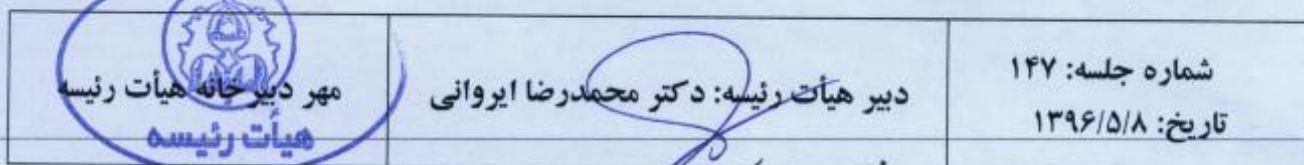 شماره جلسه: ۱۴۷
تاریخ: ۱۳۹۶/۵/۸
دبیر هیأت رئیسه: دکتر محمدرضا ایروانی
مهر دبیرخانه هیأت رئیسه
هیأت رئیسه